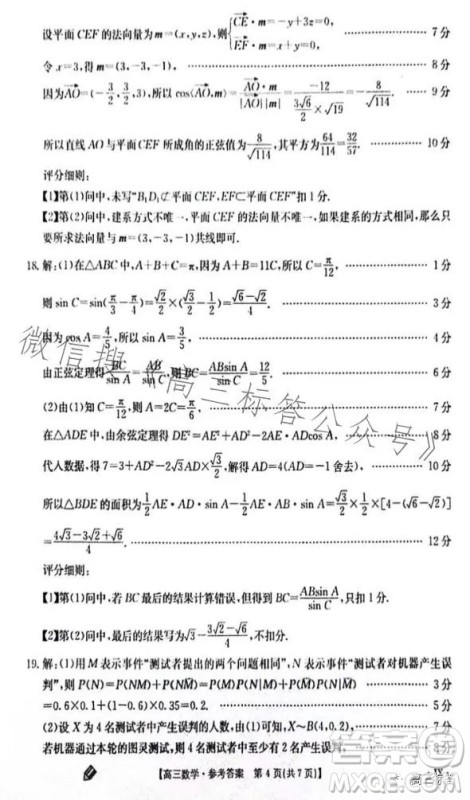 设平面 CEF 的法向量为 m=(x,y,z),则{CE·m=-y+3z=0, EF·m=x+y=0, ………… 7分
令 x=3,得 m=(3,-3,-1), ………… 8分
因为AO=(-3/2,3/2,3),所以 cos⟨AO,m⟩=AO·m/|AO||m|=-12/(3√6/2×√19)=-8/√114. ………… 9分
所以直线 AO 与平面 CEF 所成角的正弦值为8/√114,其平方为64/114=32/57. ………… 10分
评分细则:
【1】第(1)问中,未写“B₁D₁⊄平面 CEF,EF⊂平面 CEF”扣1分.
【2】第(2)问中,建系方式不唯一,平面 CEF 的法向量不唯一,如果建系的方式相同,那么只
要所求法向量与 m=(3,-3,-1)共线即可.
18.解:(1)在△ABC 中,A+B+C=π,因为 A+B=11C,所以 C=π/12, ………… 1分
则 sin C=sin(π/3-π/4)=√2/2×(√3/2-1/2)=(√6-√2)/4. ………… 3分
因为 cos A=4/5,所以 sin A=3/5, ………… 4分
由正弦定理得BC/sin A=AB/sin C,则BC=ABsin A/sin C=12/5. ………… 6分
(2)由(1)知 C=π/12,则 A=2C=π/6, ………… 7分
在△ADE 中,由余弦定理得 DE²=AE²+AD²-2AE·ADcos A, ………… 8分
代入数据,得 7=3+AD²-2√3AD×√3/2,解得 AD=4(AD=-1舍去), ………… 10分
所以△BDE 的面积为1/2AE·AD·sin A-1/2AE·AB·sin A=√3/2×1/2×[4-(√6-√2)]
=(4√3-3√2+√6)/4. ………… 12分
评分细则:
【1】第(1)问中,若 BC 最后的结果计算错误,但得到 BC=ABsin A/sin C,只扣1分.
【2】第(2)问中,最后的结果写为√3-(3√2-√6)/4,不扣分.
19.解:(1)用 M 表示事件“测试者提出的两个问题相同”,N 表示事件“测试者对机器产生误
判”,则 P(N)=P(NM)+P(NM̄)=P(M)P(N|M)+P(M̄)P(N|M̄) ………… 3分
=0.6×0.1+(1-0.6)×0.35=0.2. ………… 5分
(2)设 X 为4名测试者中产生误判的人数,由(1)可知,X~B(4,0.2), ………… 7分
若机器通过本轮的图灵测试,则4名测试者中至少有2名产生误判, ………… 8分
【高三数学·参考答案 第4页(共7页)】
微信搜《高三标答公众号》